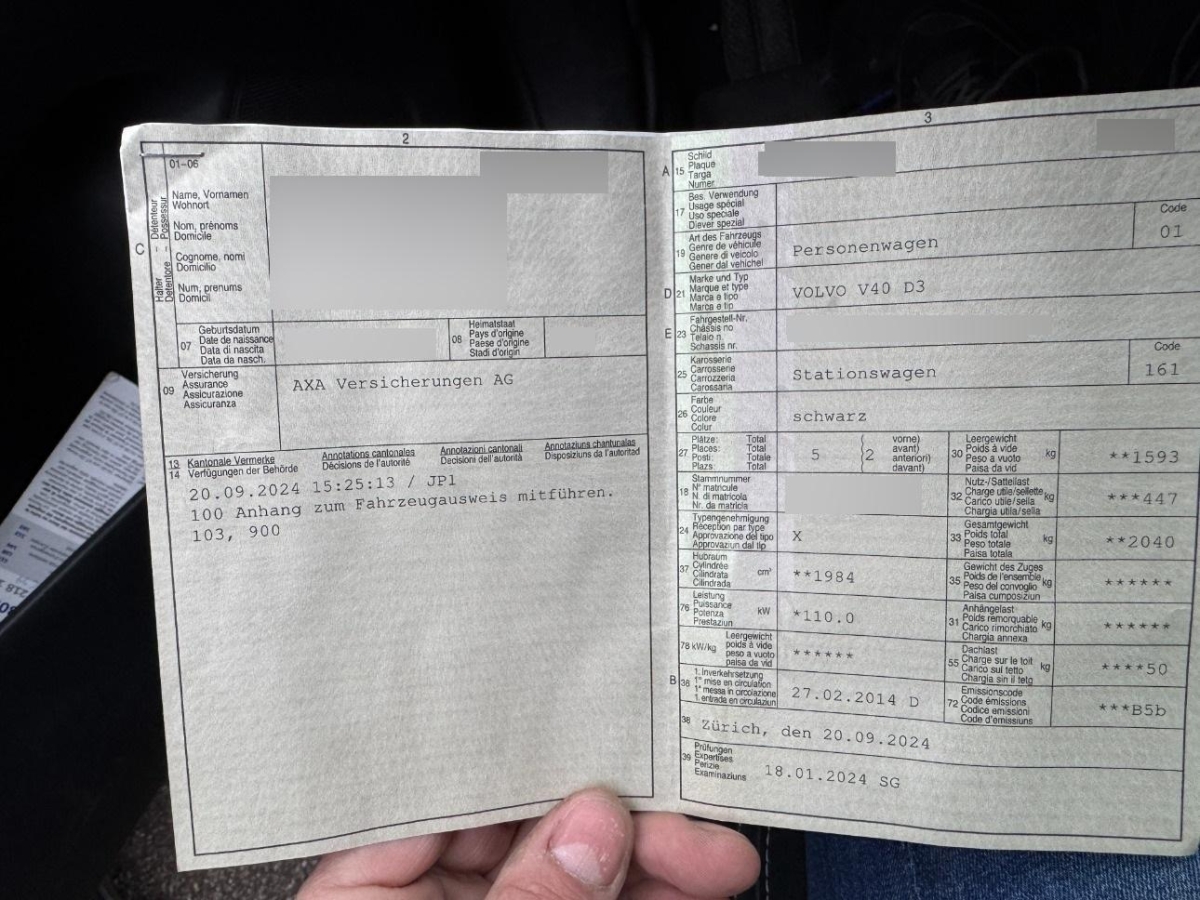 2
01-06
C
Halter – Détenteur
Detentore – Possessur
Name, Vornamen
Wohnort
Nom, prénoms
Domicile
Cognome, nomi
Domicilio
Num, prenums
Domicil
07
Geburtsdatum
Date de naissance
Data di nascita
Data da nasch.
08
Heimatstaat
Pays d'origine
Paese d'origine
Stadi d'origin
09
Versicherung
Assurance
Assicurazione
Assicuranza
AXA Versicherungen AG
13 Kantonale Vermerke
14 Verfügungen der Behörde
Annotations cantonales
Décisions de l'autorité
Annotazioni cantonali
Decisioni dell'autorità
Annotaziuns chantunalas
Disposiziuns da l'autoritad
20.09.2024 15:25:13 / JP1
100 Anhang zum Fahrzeugausweis mitführen.
103, 900
3
A 15
Schild
Plaque
Targa
Numer
17
Bes. Verwendung
Usage spécial
Uso speciale
Diever spezial
19
Art des Fahrzeugs
Genre de véhicule
Genere di veicolo
Gener dal vehichel
Personenwagen
Code
01
D 21
Marke und Typ
Marque et type
Marca e tipo
Marca e tip
VOLVO V40 D3
E 23
Fahrgestell-Nr.
Châssis no
Telaio n.
Schassis nr.
25
Karosserie
Carrosserie
Carrozzeria
Carossaria
Stationswagen
Code
161
26
Farbe
Couleur
Colore
Colur
schwarz
27
Plätze: Total
Places: Total
Posti: Totale
Plazs: Total
5
2
vorne)
avant)
anteriori)
davant)
30
Leergewicht
Poids à vide
Peso a vuoto
Paisa da vid
kg
**1593
18
Stammnummer
N° matricule
N. di matricola
Nr. da matricla
32
Nutz-/Sattellast
Charge utile/sellette
Carico utile/sella
Chargia utila/sella
kg
***447
24
Typengenehmigung
Réception par type
Approvazione del tipo
Approvaziun dal tip
X
33
Gesamtgewicht
Poids total
Peso totale
Paisa totala
kg
**2040
37
Hubraum
Cylindrée
Cilindrata
Cilindrada
cm³
**1984
35
Gewicht des Zuges
Poids de l'ensemble
Peso del convoglio
Paisa cumposiziun
kg
******
76
Leistung
Puissance
Potenza
Prestaziun
kW
*110.0
31
Anhängelast
Poids remorquable
Carico rimorchiato
Chargia annexa
kg
******
78 kW/kg
Leergewicht
poids à vide
peso a vuoto
paisa da vid
******
55
Dachlast
Charge sur le toit
Carico sul tetto
Chargia sin il tetg
kg
****50
B 36
1. Inverkehrsetzung
1re mise en circulation
1a messa in circolazione
1. entrada en circulaziun
27.02.2014 D
72
Emissionscode
Code émissions
Codice emissioni
Code d'emissiuns
***B5b
38
Zürich, den 20.09.2024
39
Prüfungen
Expertises
Perizie
Examinaziuns
18.01.2024 SG